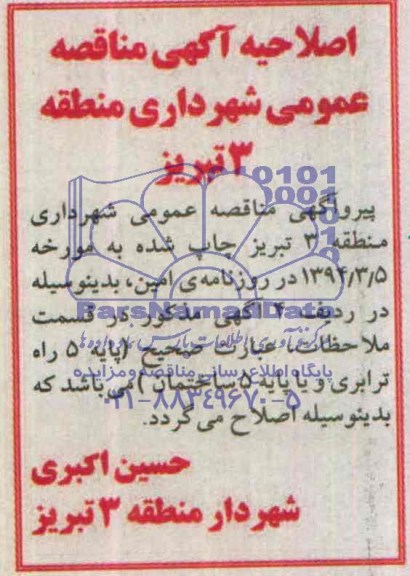 اصلاحیه آگهی مناقصه
عمومی شهرداری منطقه
۳ تبریز
پیروآگهی مناقصه عمومی شهرداری
منطقه ۳ تبریز چاپ شده به مورخه
۱۳۹۴/۳/۵ در روزنامه‌ی امین، بدینوسیله
در ردیف ۴ آگهی مذکور در قسمت
ملاحظات، عبارت صحیح (پایه ۵ راه
ترابری و یا پایه ۵ ساختمان) می‌باشد که
بدینوسیله اصلاح می‌گردد.
حسین اکبری
شهردار منطقه ۳ تبریز
ParsNamadData
پایگاه اطلاع رسانی مناقصه و مزایده
۰۲۱-۸۸۳۴۹۶۷۰-۵